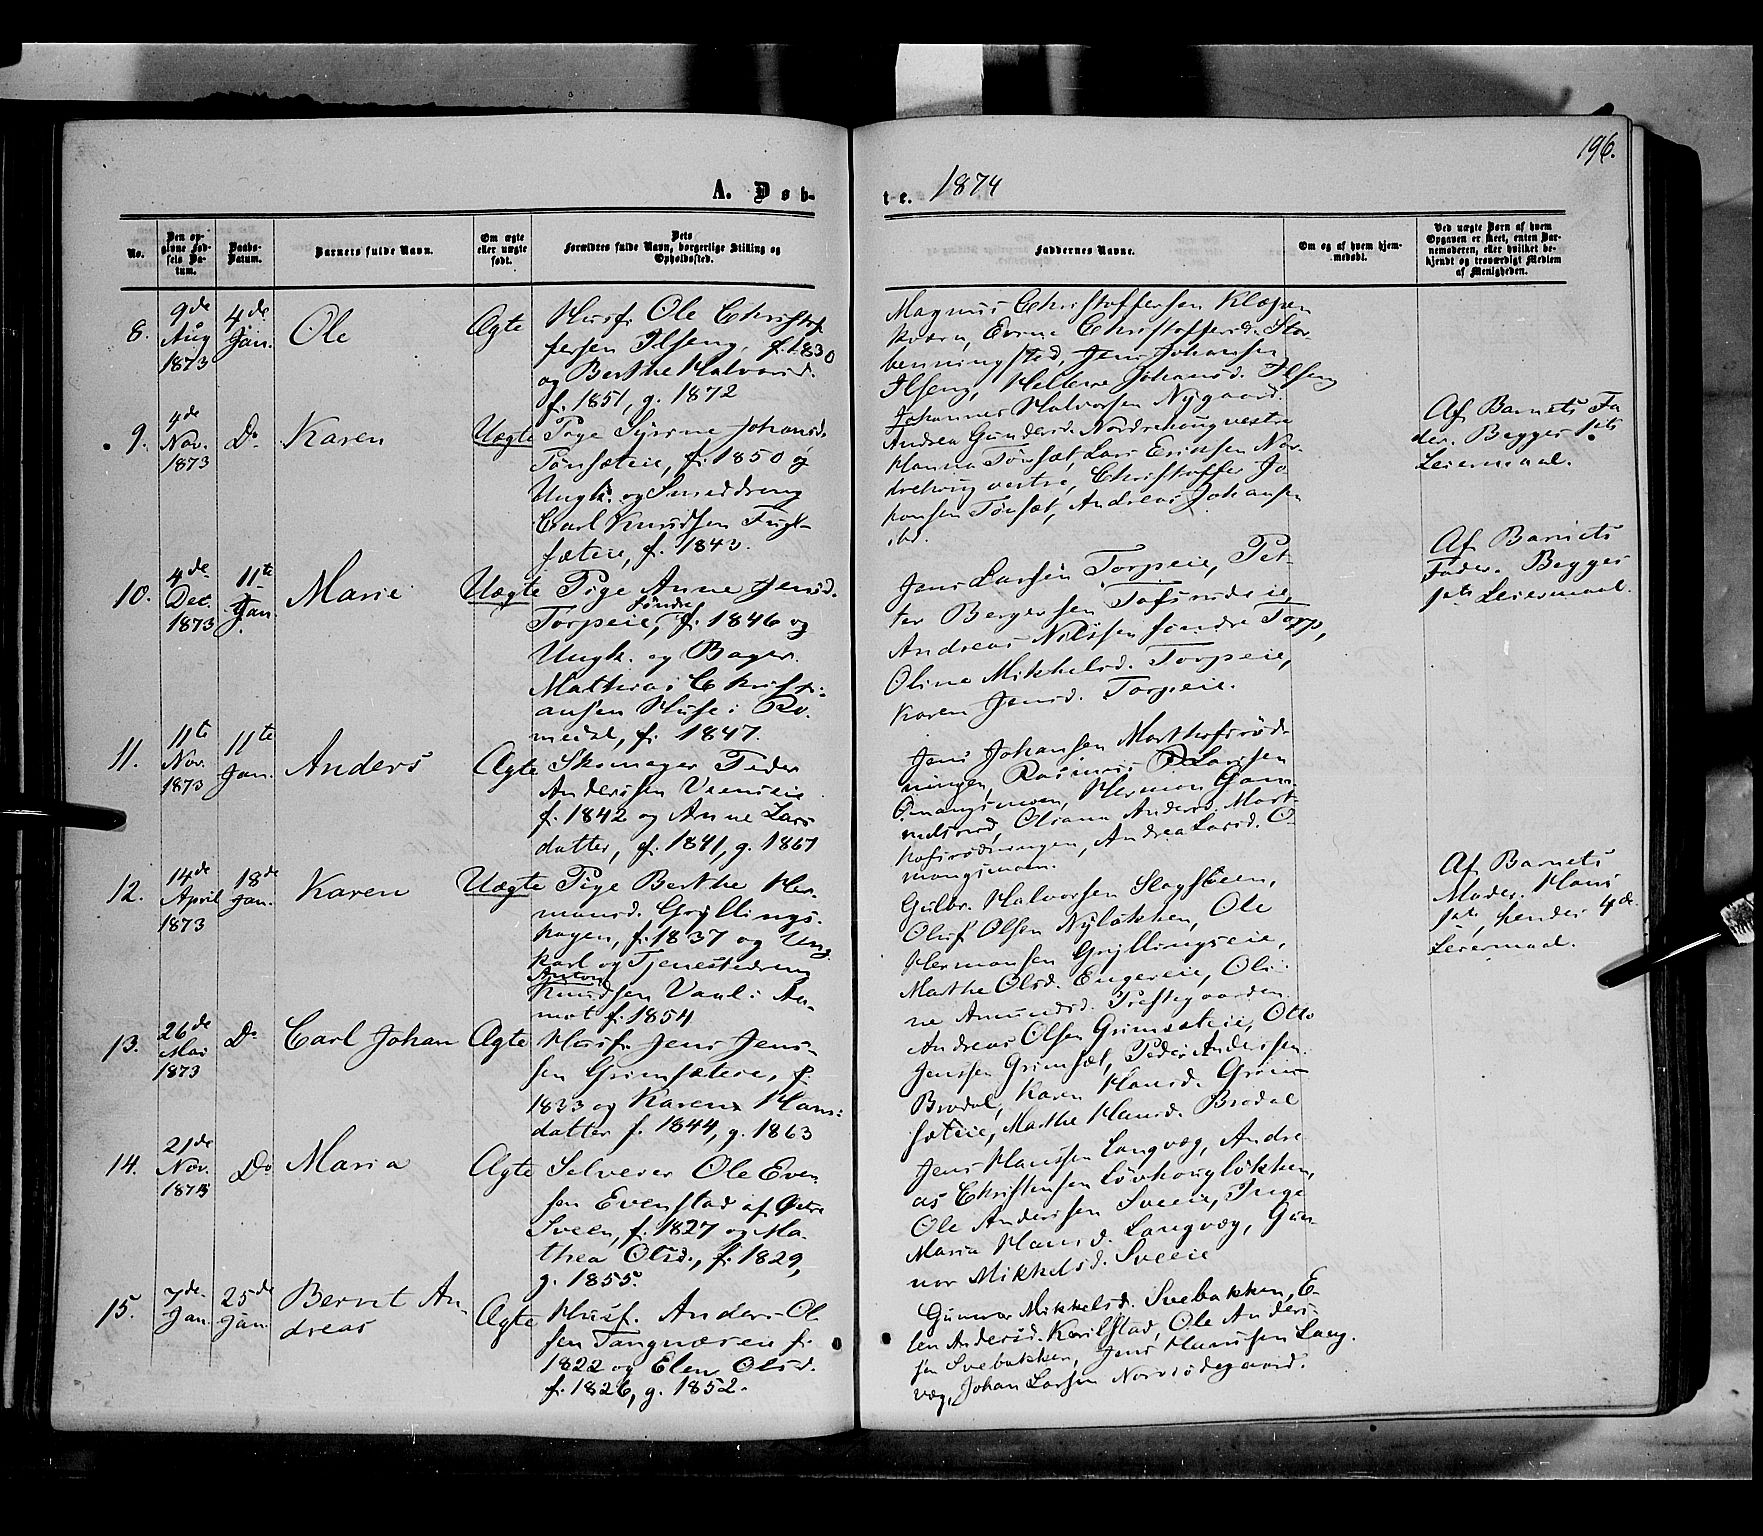 196.
A. Døb-
t-e. 1874
No.
Den op-
givne Fød-
sels Da-
tum.
Daabs-
Datum.
Barnets fulde Navn.
Om ægte
eller uægte
født.
Dets
Forældres fulde Navn, borgerlige Stilling og
Opholdssted.
Faddernes Navne.
Om og af hvem hjem-
medøbt.
Ved uægte Børn af hvem
Opgaven er skeet, enten Bar-
nemoderen, eller hvilket be-
kjendt og troværdigt Medlem
af Menigheden.
8.
9de
Aug
1873
4de
Jan.
Ole
Ægte
Husf. Ole Christof-
fersen Ilseng, f. 1830
og Berthe Halvorsd.
f. 1851, g. 1872
Magnus Christoffersen Klæpen
Christoffersd. Stor-
benningstad, Jens Johansen
Ilseng, Hellene Johansd. Ilseng
Johannes Halvorsen Nygaard.
9.
4de
Nov.
1873
Do
Karen
Uægte
Pige Syrine Johansd.
Tønsæteie, f. 1850 og
Ungk. og Smeddreng
Carl Knudsen Fugl-
sæteie, f. 1843.
Andrea Gundersd. Nordrehoug vestre
Hanna Tønsæt, Lars Eriksen Nor-
drehoug vestre, Christoffer Jo-
hansen Tønsæt, Andreas Johansen
ibd.
Af Barnets Fa-
der. Begges 1ste
Leiermaal.
10.
4de
Dec.
1873
11te
Jan.
Marie
Uægte
Pige Anne Jensd.
søndre
Torpeie, f. 1846 og
Ungk. og Bager
Mathias Christi-
ansen Huse i Ro-
medal, f. 1847.
Jens Larsen Torpeie, Pet-
ter Bergersen Tofsrudeie,
Andreas Nilssen søndre Torp,
Oline Mikkelsd. Torpeie,
Karen Jensd. Torpeie.
Af Barnets
Fader. Begges
1ste Leiermaal.
11.
11te
Nov.
1873
11te
Jan.
Anders
Ægte
Skomager Peder
Anderssen Veenseie
f. 1842 og Anne Lars-
datter, f. 1841, g. 1867
Jens Johansen Marthofsrød-
ningen, Rasmus Larssen
Omangsmoen, Herman Gam-
melsrud, Oliane Andersd. Mart-
hofsrødningen, Andrea Larsd. O-
mangsmoen.
12.
14de
April
1873
18de
Jan.
Karen
Uægte
Pige Berthe Her-
mansd. Gryllings-
hagen, f. 1837 og Ung-
karl og Tjenestedreng
Anton
Knudsen Vaal i Aa-
mot f. 1854
Gulbr. Halvorsen Slagsteen,
Oluf Olsen Nyløkken, Ole
Hermansen Gryllingseie,
Marthe Olsd. Engereie, Oli-
ne Amundsd. Prestegaarden.
Af Barnets
Moder. Hans
1ste, hendes 4de
Leiermaal.
13.
26de
Mai
1873
Do
Carl Johan
Ægte
Husf. Jens Jens-
sen Grimsæteie, f.
1833 og Karen Hans-
datter f. 1844, g. 1863
Andreas Olsen Grimsæteie, Otto
Jenssen Grimsæt, Peder Anderssen
Brodal, Karen Hansd. Grim-
sæteie, Marthe Hansd. Brodal
14.
21de
Nov.
1873
Do
Maria
Ægte
Selveier Ole Even-
sen Evenstad af Østre
Sveen, f. 1827 og Ma-
thea Olsd., f. 1829,
g. 1855.
Jens Hanssen Langvæg, Andre-
as Christensen Løvhougløkken,
Ole Anderssen Sveeie, Pige
Maria Hansd. Langvæg, Gun-
nor Mikkelsd. Sveeie
15.
7de
Jan.
25de
Jan.
Bernt An-
dreas
Ægte
Husf. Anders Ol-
sen Tangnæseie f.
1822 og Elen Olsd.
f. 1826, g. 1852.
Gunnor Mikkelsd. Svebakken, E-
len Andersd. Karilstad, Ole Anders-
sen Svebakken, Jens Hanssen Lang-
væg, Johan Larsen Norsrødegaard.